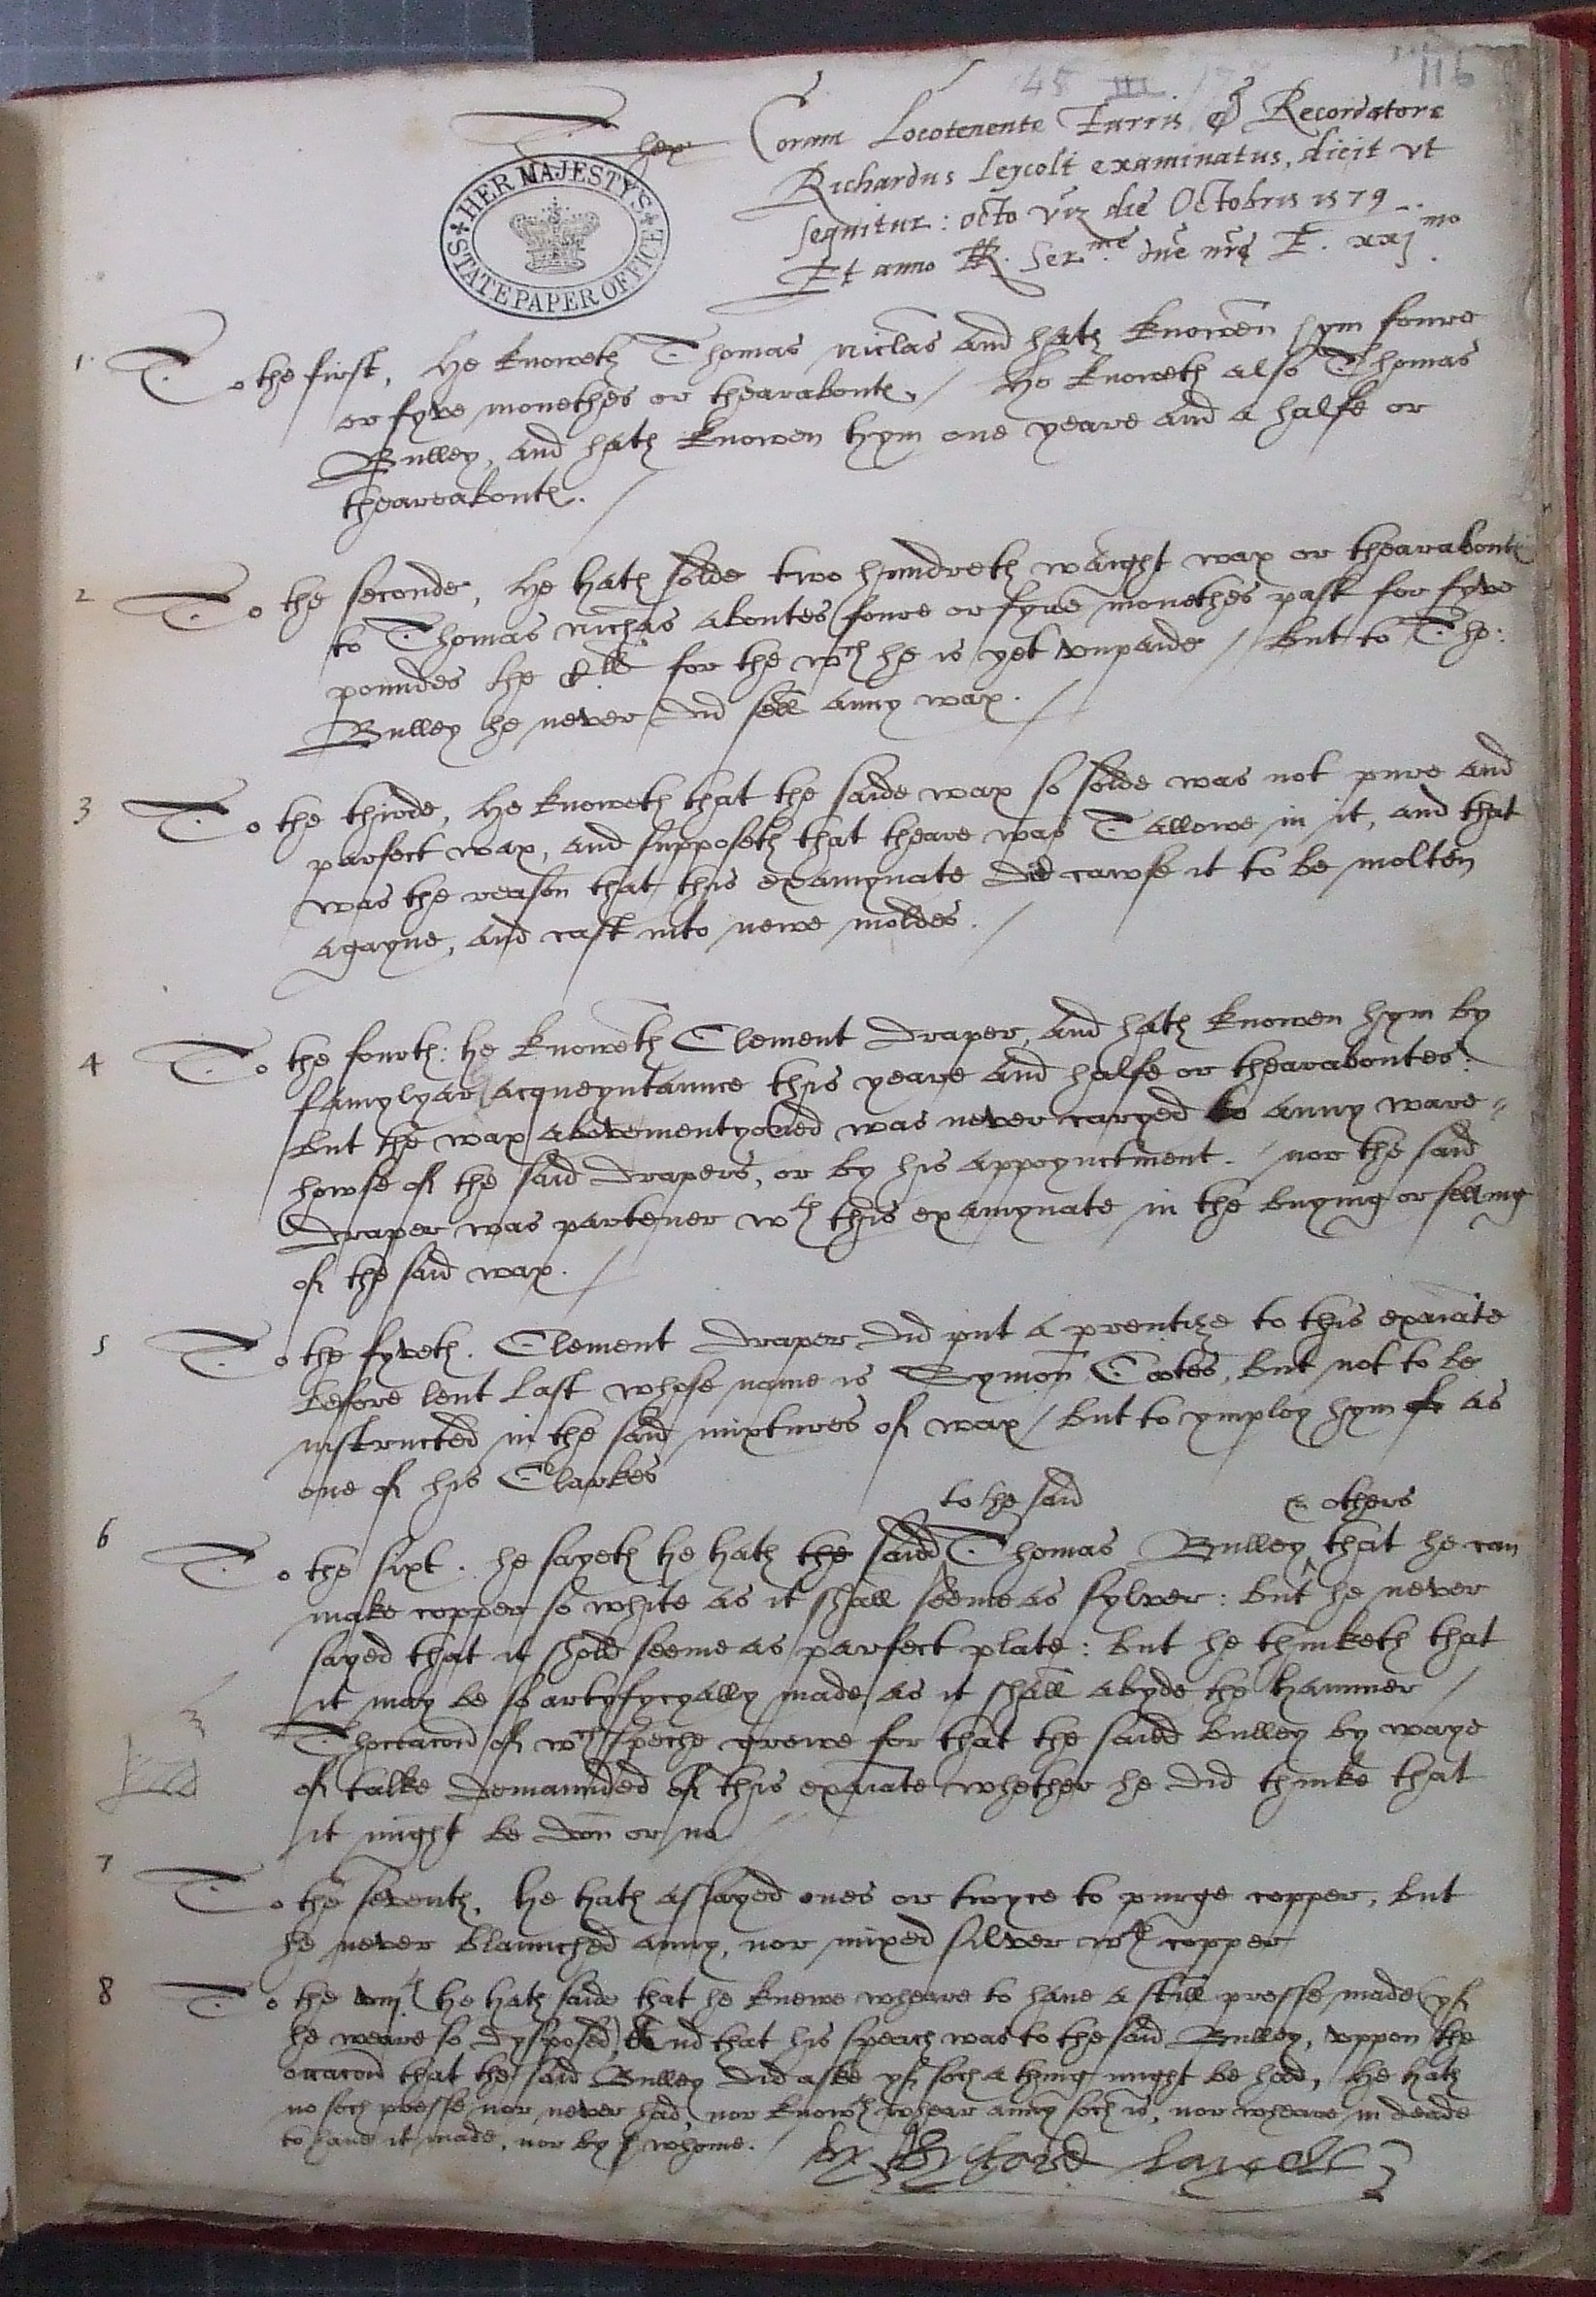 45 III 116
HER MAJESTY'S
STATE PAPER OFFICE
Coram Locotenente Turris & Recordatore
Richardus Leycolt examinatus, dicit vt
sequitur: octo viz die Octobris 1579
Et anno RR. Ser.me dne nre E. xxjmo
1 To the first, He knoweth Thomas Niclas and hath knowen hym foure
or fyve monethes or thearabout(es)./ He knoweth also Thomas
Bulley, and hath knowen hym one yeare and a halfe or
theareabout(es)./
2 To the seconde, He hath solde two hundreth waight wax or thearabout(es)
to Thomas Nichas aboutes foure or fyve monethes past for fyve
poundes the for the wch he is yet vnpaide / But to Tho:
Bulley he never did sell anny wax./
3 To the thirde, He knoweth that the saide wax so solde was not pure and
parfect wax, and supposeth that theare was Tallowe in it, and that
was the reason that this examynate did cawse it to be molten
agayne, and cast into newe moldes./
4 To the fourth: he knoweth Clement Draper, and hath knowen hym by
famylyar acqueyntaunce this yeare and halfe or thearaboutes:
but the wax abovementyoned was never caryed to anny ware=
howse of the said Drapers, or by his appoynctment./ nor the said
Draper was partener wth this examynate in the buying or selling
of the said wax./
5 To the fyveth. Clement Draper did put a prentize to this exaiate
before lent last whose name is Symon Cootes, but not to be
instructed in the said mixtures of wax / but to ymploy hym as
one of his Clarkes
to the said & others
6 To the sixt. he sayeth he hath the said Thomas Bulley that he can
make copper so white as it shall seeme as sylver: but he never
sayed that it shold seeme as parfect plate: but he thinketh that
it may be so artyfycyally made as it shall abyde the hammer /
Thoccacon of wch speche grewe for that the saied Bulley by waye
of talke demaunded of this exaiate whether he did thinke that
it might be don or no
7 To the seventh, he hath assayed ones or twyce to purge copper, but
he never blaunched anny, nor mixed silver wth copper
8 To the viijth He hath said that he knewe wheare to have a still presse made (yf
he weare so dysposed) And that his speach was to the said Bulley, vppon the
occacon that the said Bulley did aske yf soch a thing might be had, He hath
no soch presse nor never had, nor knowth whear anny soch is, nor wheare in deade
to have it made, nor by whome./ by Rychard Laycolt